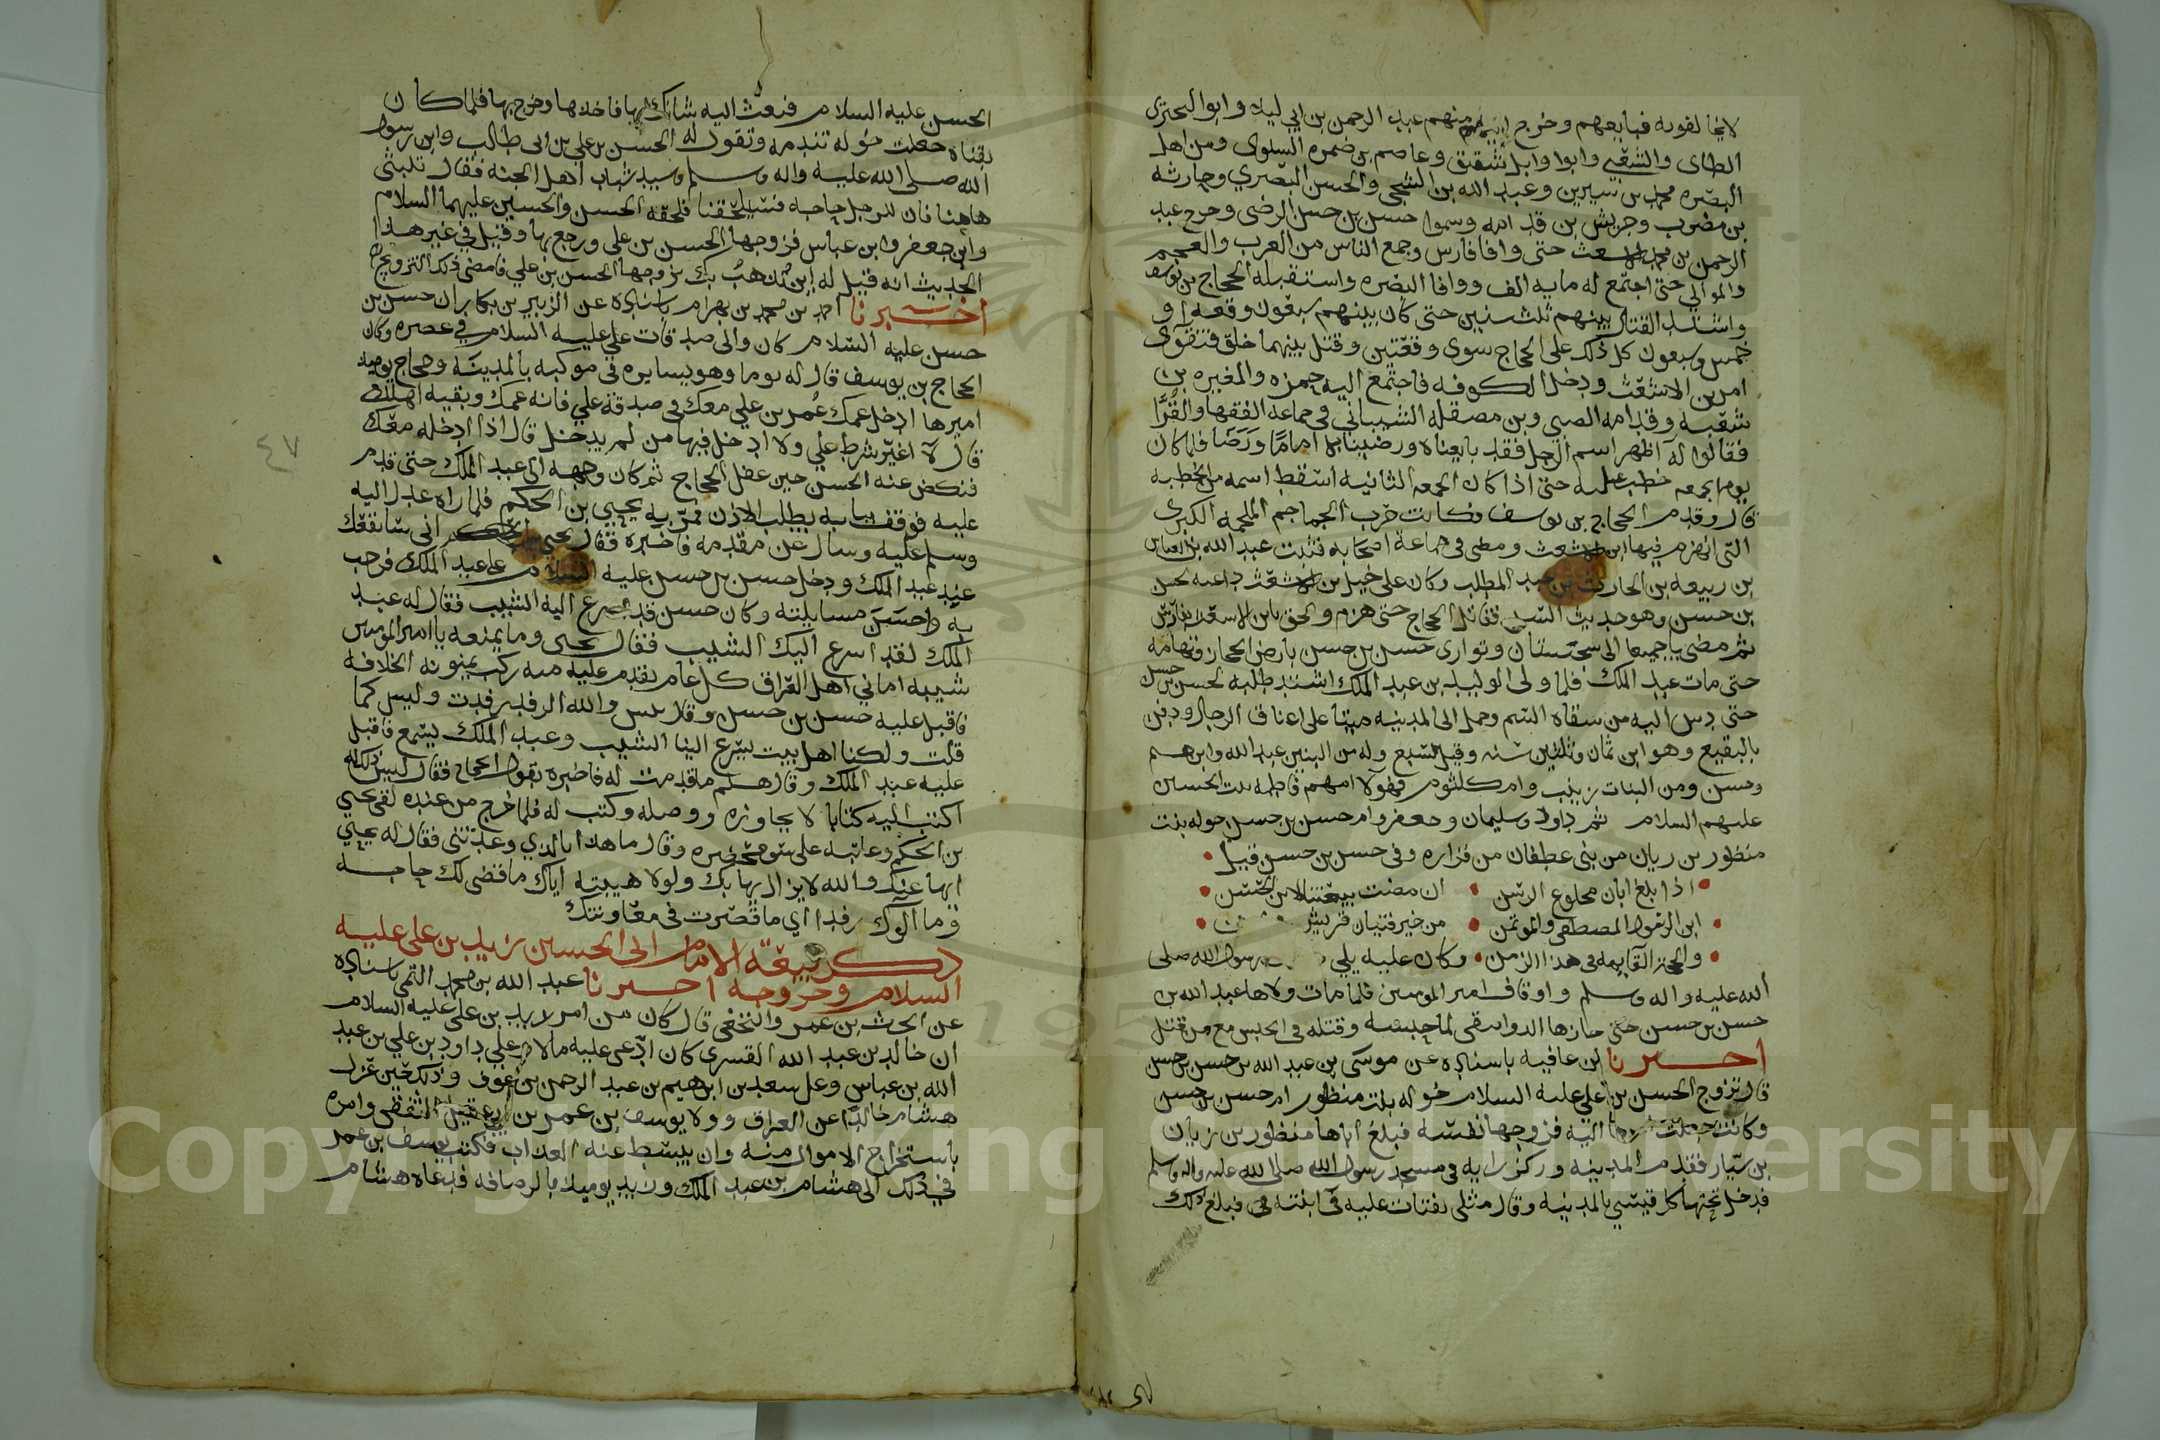 لايخالفونه فبايعهم وخرج اليهم منهم عبد الرحمن بن ابي ليلا وابوا البحتري
الطاى والشعبي وابوا وايل شقيق وعاصم بن ضمره السلولى ومن اهل
البصره محمد بن سيرين وعبد الله بن الشخى والحسن البصري وحارثه
بن مضرب وحريش بن قدامه وسموا حسن بن حسن الرضى وخرج عبد
الرحمن بن محمد الاشعث حتى وافا فارس وجمع الناس من العرب والعجم
والموالي حتى اجتمع له مايه الف ووافا البصره واستقبله الحجاج بن يوسف
واشتد القتال بينهم ثلث سنين حتى كان بينهم سبعون وقعه او
خمس وسبعون كل ذلك على الحجاج سوى وقعتين وقتل بينهما خلق فتقوى
امر بن الاشعث ودخل الكوفه فاجتمع اليه حمزه والمغيره بن
شعبه وقدامه الصبي وبن مصقله الشيباني في جماعه الفقها والقرا
فقالوا له اظهر اسم الرجل فقد بايعناه ورضينا به اماما ورضا فلما كان
يوم الجمعه خطب عليه حتى اذا كان الجمعه الثانيه اسقط اسمه من الخطبه
قال وقدم الحجاج بن يوسف فكانت حرب الجماجم الملحمه الكبرى
التى انهزم فيها ابن الاشعث ومضى في جماعه اصحابه فثبت عبد الله بن العباس
بن ربيعه بن الحارث بن عبد المطلب وكان على خيل بن الاشعث داعيه لحسن
بن حسن وهو حديث السن فقاتل الحجاج حتى هزم ولحق بابن الاسعث بفارس
ثم مضى ياجميعا الى سجستان وتوارى حسن بن حسن بارض الحجاز وتهامه
حتى مات عبد الملك فلما ولى الوليد بن عبد الملك اشتد طلبه لحسن بن حسن
حتى دس اليه من سقاه السم وحمل الى المدينه ميتا على اعناق الرجال ودفن
بالبقيع وهو ابن ثمان وثلثين سنه وقيل سبع وله من البنين عبد الله وابرهيم
وحسن ومن البنات زينب وام كلثوم فهولا امهم فاطمه بنت الحسين
عليهم السلام ثم داود وسليمان وجعفر وام حسن بن حسن خوله بنت
منظور بن ريان من بنى عطفان من فزاره وفى حسن بن حسن قيل
اذا بلغ ابان مخلوع الرسن ان مضت بيعتنا لابن الحسن
ابن الرسول المصطفى والموتمن من خير فتيان قريش
والحجه القايمه فى هذا الزمن وكان عليه يلي رسول الله صلى
الله عليه واله وسلم واوقاف امير المومنين فلما مات ولاها عبد الله بن
حسن بن حسن حتى حازها الدوانيقى لما حبسه وقتله فى الحبس مع من قتل
اخبرنا بن عافيه باسناده عن موسى بن عبد الله بن حسن بن حسن
قال تزوج الحسن بن علي عليه السلام خوله بنت منظور ام حسن بن حسن
وكانت جعلت امرها اليه فزوجها نفسه فبلغ اباها منظور بن زيان
بن سيار فقدم المدينه وركز رايه فى مسجد رسول الله صلى الله عليه واله وسلم
فدخل تحتها كل قيسي بالمدينه وقال مثلى يفتات عليه فى ابنته فبلغ ذلك
الحسن عليه السلام فبعث اليه شانك بها فاخذها وخرج بها فلما كان
بقباه جعلت خوله تندمه وتقول له الحسن بن علي بن ابى طالب وابن رسول
الله صلى الله عليه واله وسلم وسيد شباب اهل الجنه فقال تلبثى
هاهنا فان للرجل حاجه فسيلحقنا فلحقه الحسن والحسين عليهما السلام
وابن جعفر وابن عباس فزوجها الحسن بن على ورجع بها وقيل في غير هذا
الحديث انه قيل له اين يذهب بك تزوجها الحسن بن علي فامضى ذلك التزويج
اخبرنا احمد بن محمد بن بهرام باسناده عن الزبير بن بكار ان حسن بن
حسن عليه السلام كان والى صدقات على عليه السلام في عصره وكان
الحجاج بن يوسف قال له يوما وهو يسايره فى موكبه بالمدينه وحجاج يوميذ
اميرها ادخل عمك عمر بن علي معك فى صدقة علي فانه عمك وبقيه اهلك
قال لا اغير شرط علي ولا ادخل فيها من لم يدخل قال اذا ادخله معك
فنكص عنه الحسن حين عفل الحجاج ثم كان وجهه الى عبد الملك حتى قدم
عليه فوقف ببابه يطلب الاذن فمر به يحيى بن الحكم فلما راه عدل اليه
وسلم عليه وسال عن مقدمه فاخبره فقال يحيى انى سانفعك
عند عبد الملك ودخل حسن بن حسن عليه السلام على عبد الملك فرحب
به واحسن مسايلته وكان حسن قد اسرع اليه الشيب فقال له عبد
الملك لقد اسرع اليك الشيب فقال يحيى وما يمنعه يا امير المومنين
شيبه امانى اهل العراق كل عام يقدم عليه منه ركب يمنونه الخلافه
فاقبل عليه حسن بن حسن وقال بيس والله الرفد رفدت وليس كما
قلت ولكنا اهل بيت يسرع الينا الشيب وعبد الملك يسمع فاقبل
عليه عبد الملك وقال هلم ما قدمت له فاخبره بقول الحجاج فقال ليس ذلك له
اكتب اليه كتابا لا يجاوزه ووصله وكتب له فلما خرج من عنده لقى يحيى
بن الحكم وعاتبه على سو محضره وقال ما هذا بالذي وعدتنى فقال له يحيي
ايها عنك والله لا يزال يهابك ولولا هيبته اياك ما قضى لك حاجه
وما الوتك رفدا اي ما قصرت فى معاونتك
ذكر بيعة الامام ابى الحسين زيد بن على عليه
السلام وخروجه اخبرنا عبد الله بن محمد التمى باسناده
عن الحرث بن عمر والنخفى قال كان من امر زيد بن على عليه السلام
ان خالد بن عبد الله القسرى كان ادعى عليه مالا وعلي داود بن علي بن عبد
الله بن عباس وعلى سعد بن ابرهيم بن عبد الرحمن بن عوف وذلك حين عزل
هشام خالدا عن العراق وولا يوسف بن عمر بن ابى عقيل الثقفى وامره
باستخراج الاموال منه وان يبسط عنه العذاب فكتب يوسف بن عمر
في ذلك الى هشام بن عبد الملك وزيد يوميذ بالرصافه فدعاه هشام
٤٧